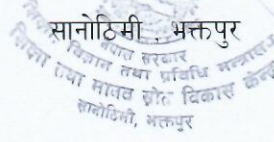 सानोठिमी , भक्तपुर
नेपाल सरकार
विज्ञान तथा प्रविधि मन्त्रालय
शिक्षा तथा मानव स्रोत विकास केन्द्र
सानोठिमी, भक्तपुर